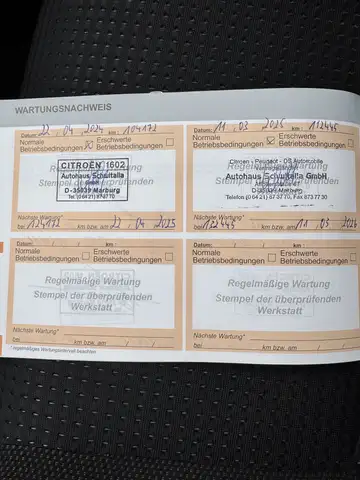 WARTUNGSNACHWEIS
Datum: 22 . 04 . 2024 km : 104172
Normale Betriebsbedingungen ☒ Erschwerte Betriebsbedingungen ☐
CITROËN 1602
Autohaus Schwitalla
GmbH
D-35039 Marburg
Tel. (0 64 21) 87 37 70
Nächste Wartung*
bei 124172 km bzw. am 22 . 04 . 2025
Datum: 11 . 03 . 2025 km : 112445
Normale Betriebsbedingungen ☒ Erschwerte Betriebsbedingungen ☐
Citroën - Peugeot - DS Automobile
Vertragshändler
Autohaus Schwitalla GmbH
35039 Marburg
Telefon (0 64 21) 87 37 70, Fax 873 77 30
Nächste Wartung*
bei 132445 km bzw. am 11 . 03 . 2026
Datum: / / km :
Normale Betriebsbedingungen ☐ Erschwerte Betriebsbedingungen ☐
Regelmäßige Wartung
Stempel der überprüfenden
Werkstatt
Nächste Wartung*
bei km bzw. am / /
Datum: / / km :
Normale Betriebsbedingungen ☐ Erschwerte Betriebsbedingungen ☐
Regelmäßige Wartung
Stempel der überprüfenden
Werkstatt
Nächste Wartung*
bei km bzw. am / /
* regelmäßiges Wartungsintervall beachten